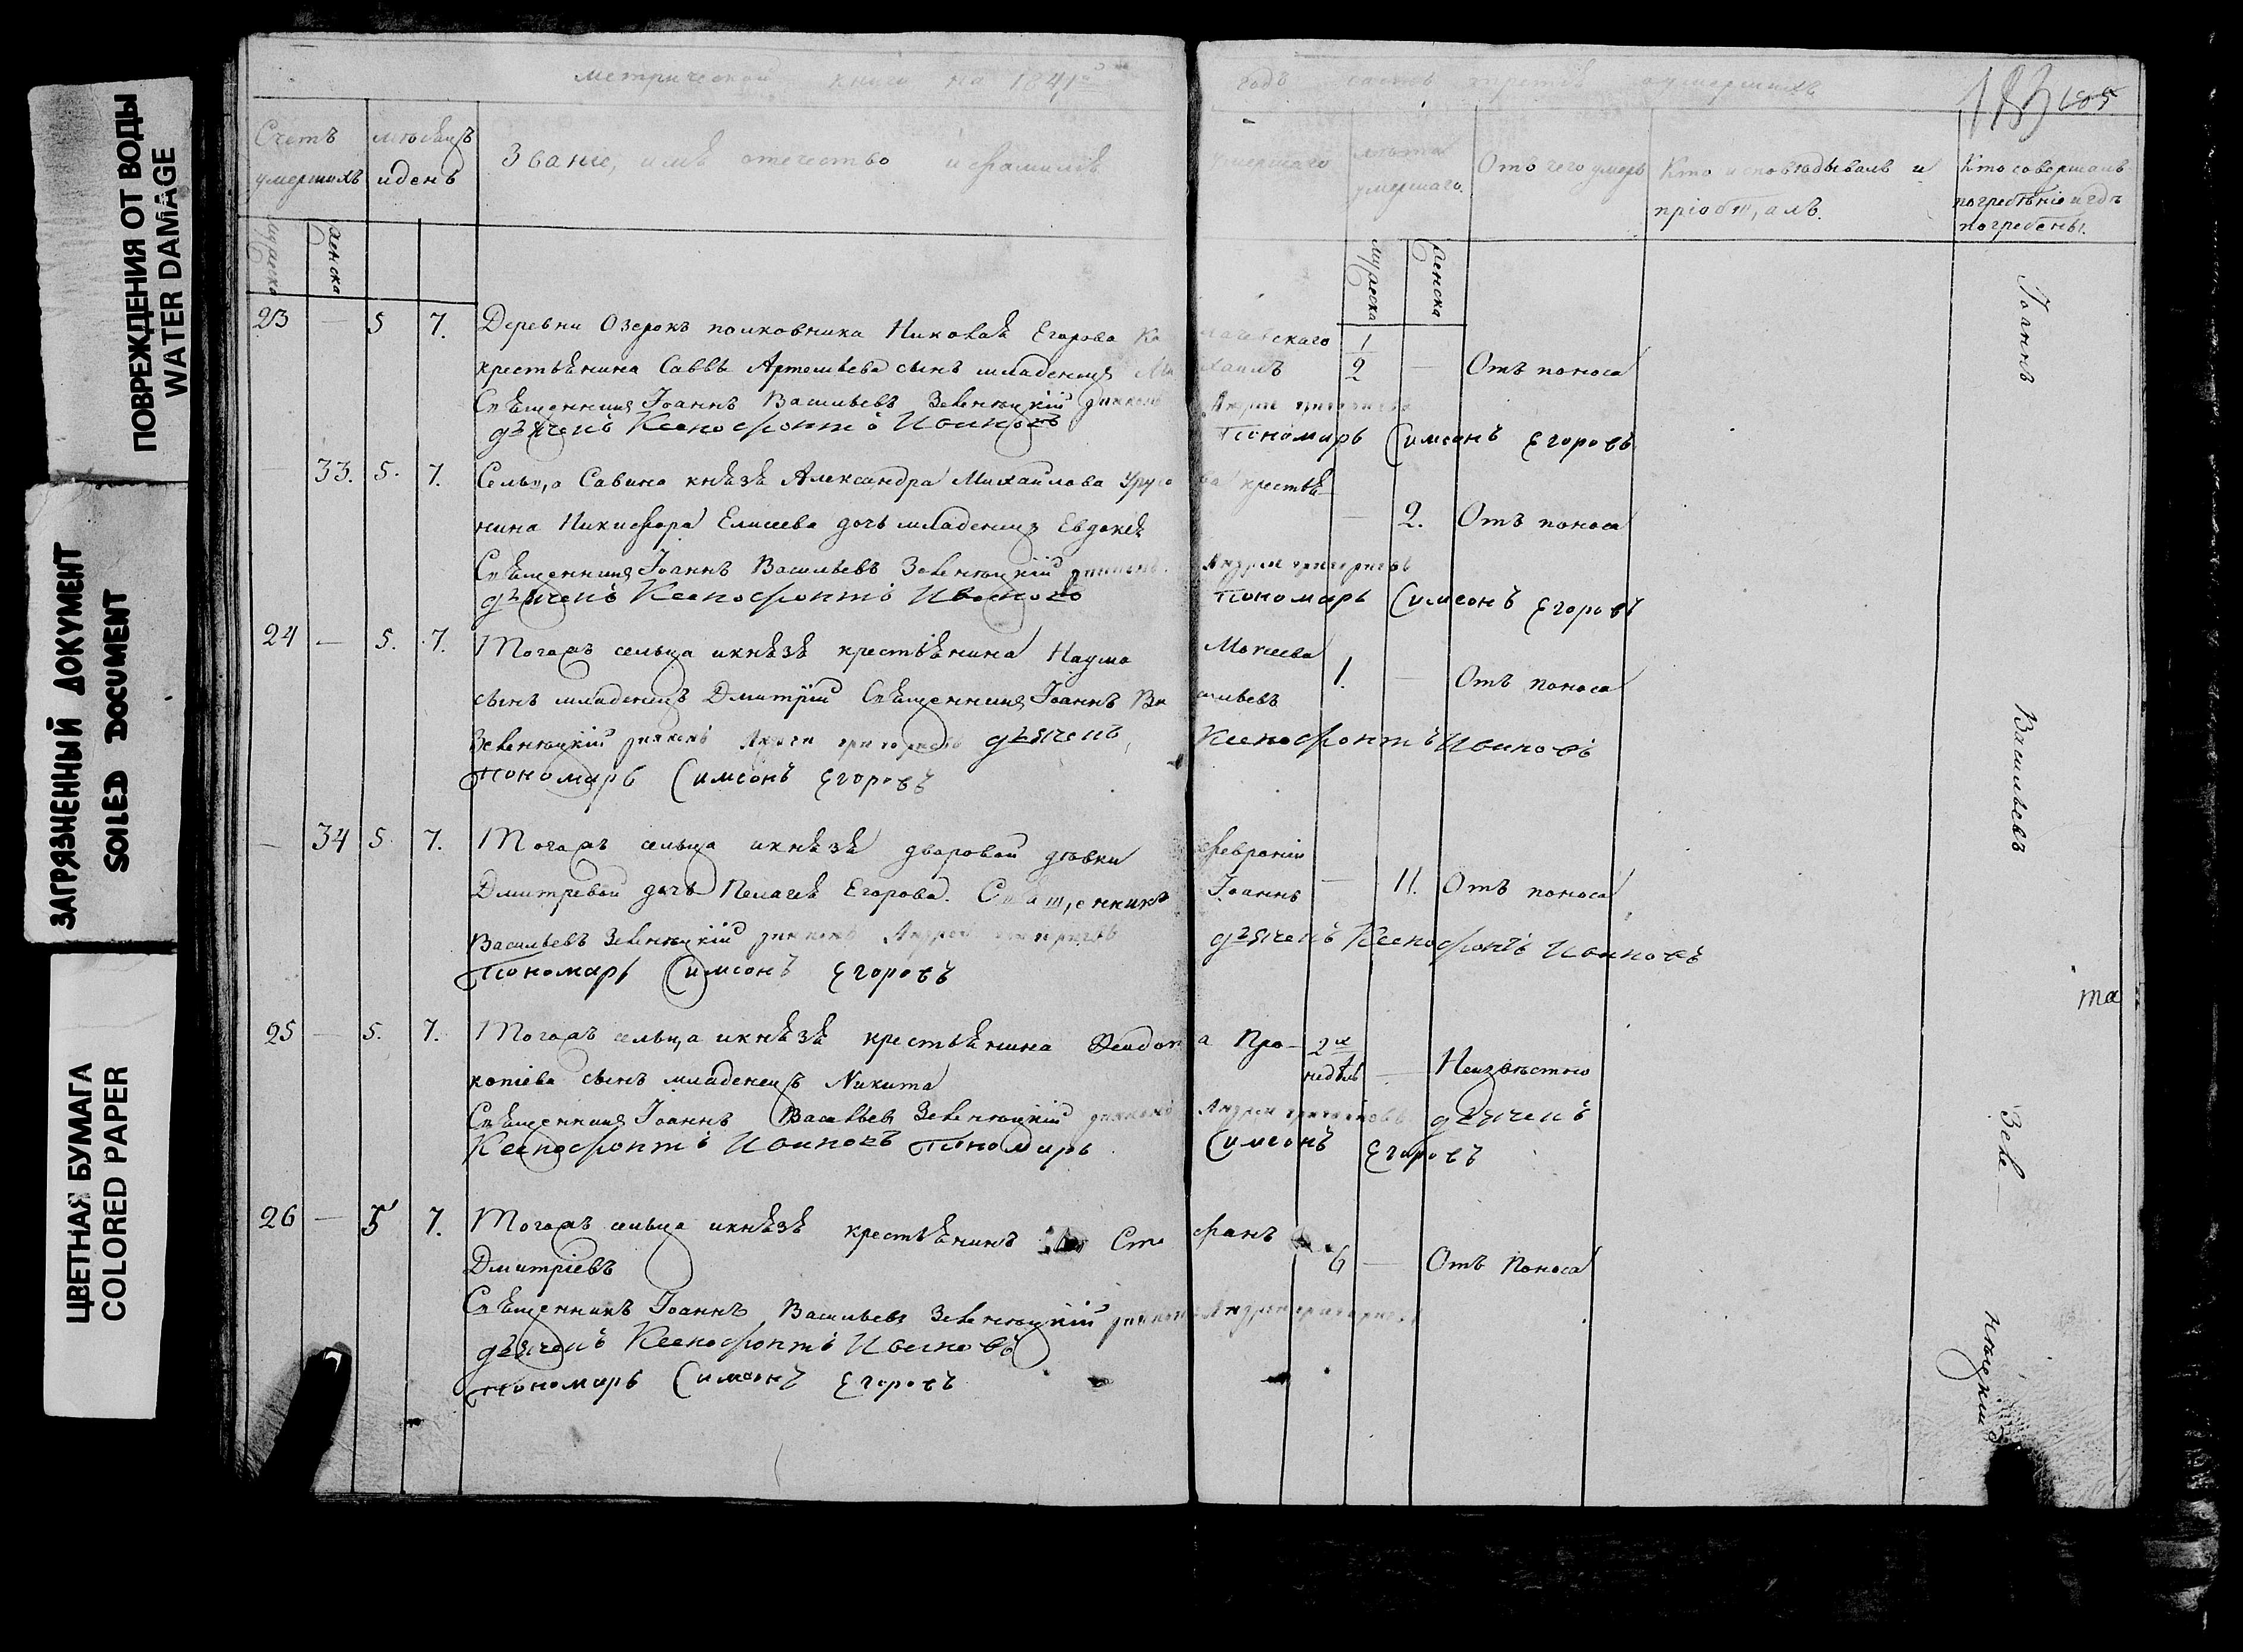 ПОВРЕЖДЕНИЯ ОТ ВОДЫ
WATER DAMAGE
ЗАГРЯЗНЕННЫЙ ДОКУМЕНТ
SOILED DOCUMENT
ЦВЕТНАЯ БУМАГА
COLORED PAPER
метрической книги на 1841й годъ часть третія о умершихъ
183 185
Счетъ умершихъ
мѣсяцъ и день
Званіе, имя отечество и фамилія умершаго
лѣта умершаго
Отъ чего умеръ
Кто исповѣдывалъ и пріобщалъ.
Кто совершалъ погребѣніе и гдѣ погребены.
мужска женска
мужска женска
23 — 5 7. Деревни Озерокъ полковника Николая Егорова 1/2 — Отъ поноса
крестьянина Саввы Артемьева сынъ младенецъ Михаилъ
Священникъ Іоаннъ Васильевъ Зеленецкій диаконъ Андрей Григорьевъ
дьячекъ Ксенофонтъ Ивановъ Пономарь Симеонъ Егоровъ
— 33. 5. 7. Сельца Савина князя Александра Михайлова Урусова крестья-
нина Никифора Елисеева дочь младенецъ Евдокія — 2. Отъ поноса
Священникъ Іоаннъ Васильевъ Зеленецкій диаконъ Андрей Григорьевъ
дьячекъ Ксенофонтъ Ивановъ Пономарь Симеонъ Егоровъ
24 — 5. 7. Тогожъ сельца и князя крестьянина Наума Мокеева 1. — Отъ поноса
сынъ младенецъ Дмитрій Священникъ Іоаннъ Васильевъ
Зеленецкій диаконъ Андрей Григорьевъ дьячекъ Ксенофонтъ Ивановъ
Пономарь Симеонъ Егоровъ
— 34 5 7. Тогожъ сельца и князя дворовой дѣвки Февроніи
Дмитревой дочь Пелагея Егорова. Священникъ Іоаннъ — 11. Отъ поноса
Васильевъ Зеленецкій диаконъ Андрей Григорьевъ дьячекъ Ксенофонтъ Ивановъ
Пономарь Симеонъ Егоровъ
25 — 5. 7. Тогожъ сельца и князя крестьянина Про- 2хъ недѣль — Неизвѣстно
копіева сынъ младенецъ Никита
Священникъ Іоаннъ Васильевъ Зеленецкій диаконъ Андрей Григорьевъ дьячекъ
Ксенофонтъ Ивановъ Пономарь Симеонъ Егоровъ
26 — 5 7. Тогожъ сельца и князя крестьянинъ Стефанъ 6 — Отъ поноса
Дмитріевъ
Священникъ Іоаннъ Васильевъ Зеленецкій диаконъ Андрей Григорьевъ
дьячекъ Ксенофонтъ Ивановъ
Пономарь Симеонъ Егоровъ
Іоаннъ Васильевъ Зеле- нецкій
та